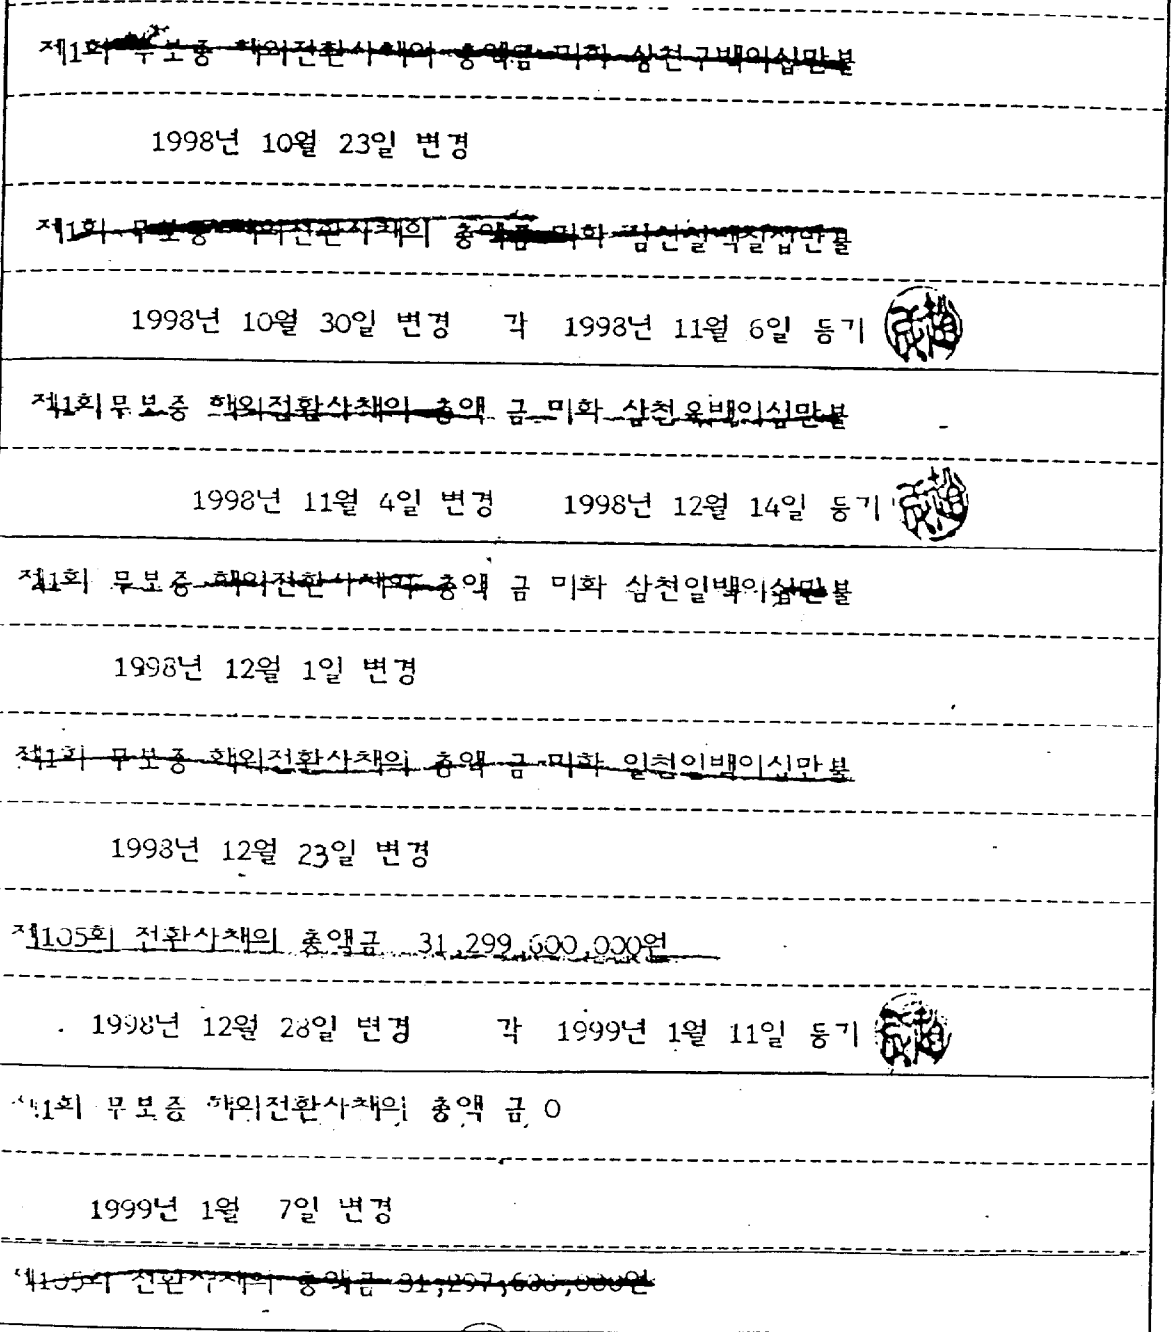 제1회 무보증 해외전환사채의 총액금 미화 삼천구백이십만불
1998년 10월 23일 변경
제1회 무보증 해외전환사채의 총액금 미화 삼천칠백칠십만불
1998년 10월 30일 변경 각 1998년 11월 6일 등기
제1회무보증 해외전환사채의 총액 금 미화 삼천육백이십만불
1998년 11월 4일 변경 1998년 12월 14일 등기
제1회 무보증 해외전환사채의 총액 금 미화 삼천일백이십만불
1998년 12월 1일 변경
제1회 무보증 해외전환사채의 총액 금 미화 일천일백이십만불
1998년 12월 23일 변경
제105회 전환사채의 총액금 31,299,600,000원
1998년 12월 28일 변경 각 1999년 1월 11일 등기
제1회 무보증 해외전환사채의 총액 금 0
1999년 1월 7일 변경
제105회 전환사채의 총액금 31,297,600,000원